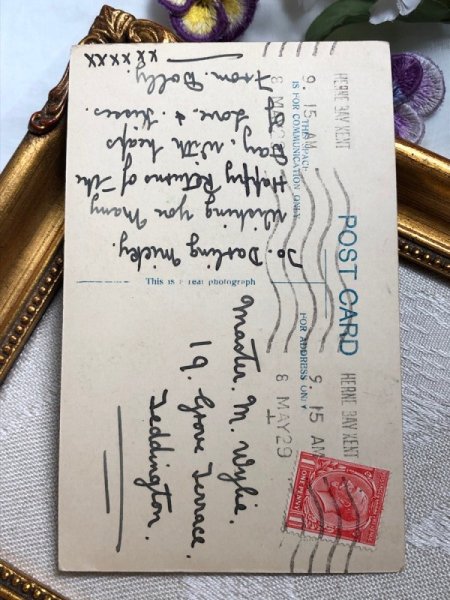 POST CARD
THIS SPACE
IS FOR COMMUNICATION ONLY
FOR ADDRESS ONLY
HERNE BAY KENT
9. 15 AM
8 MAY 29
HERNE BAY KENT
9. 15 AM
8 MAY 29
This is a real photograph
To. Darling Micky.
Wishing you Many
Happy Returns of The
Day, with heaps
Love. & Kisses.
From. Dolly.
xxxxxxx
Master. M. Wylie.
19. Grove Terrace.
Teddington.
ONE PENNY